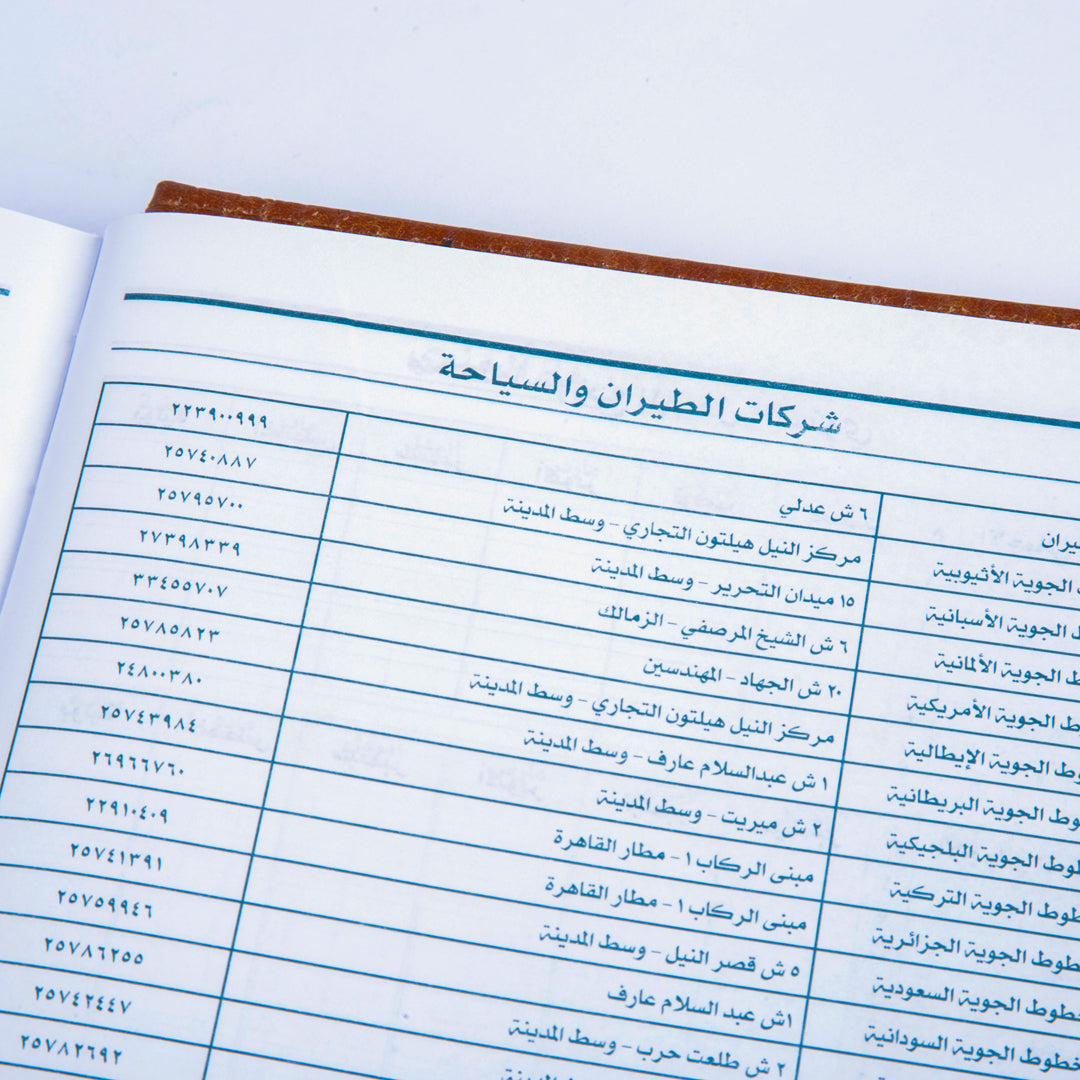 شركات الطيران والسياحة
يران ٦ ش عدلي ٢٢٣٩٠٠٩٩٩
الجوية الأثيوبية مركز النيل هيلتون التجاري - وسط المدينة ٢٥٧٤٠٨٨٧
ط الجوية الأسبانية ١٥ ميدان التحرير - وسط المدينة ٢٥٧٩٥٧٠٠
ط الجوية الألمانية ٦ ش الشيخ المرصفي - الزمالك ٢٧٣٩٨٣٣٩
ط الجوية الأمريكية ٢٠ ش الجهاد - المهندسين ٣٣٤٥٥٧٠٧
وط الجوية الإيطالية مركز النيل هيلتون التجاري - وسط المدينة ٢٥٧٨٥٨٢٣
وط الجوية البريطانية ١ ش عبدالسلام عارف - وسط المدينة ٢٤٨٠٠٣٨٠
لوط الجوية البلجيكية ٢ ش ميريت - وسط المدينة ٢٥٧٤٣٩٨٤
طوط الجوية التركية مبنى الركاب ١ - مطار القاهرة ٢٦٩٦٦٧٦٠
طوط الجوية الجزائرية مبنى الركاب ١ - مطار القاهرة ٢٢٩١٠٤٠٩
خطوط الجوية السعودية ٥ ش قصر النيل - وسط المدينة ٢٥٧٤١٣٩١
خطوط الجوية السودانية ١ش عبد السلام عارف ٢٥٧٥٩٩٤٦
٢ ش طلعت حرب - وسط المدينة ٢٥٧٨٦٢٥٥
٢٥٧٤٢٤٤٧
٢٥٧٨٢٦٩٢